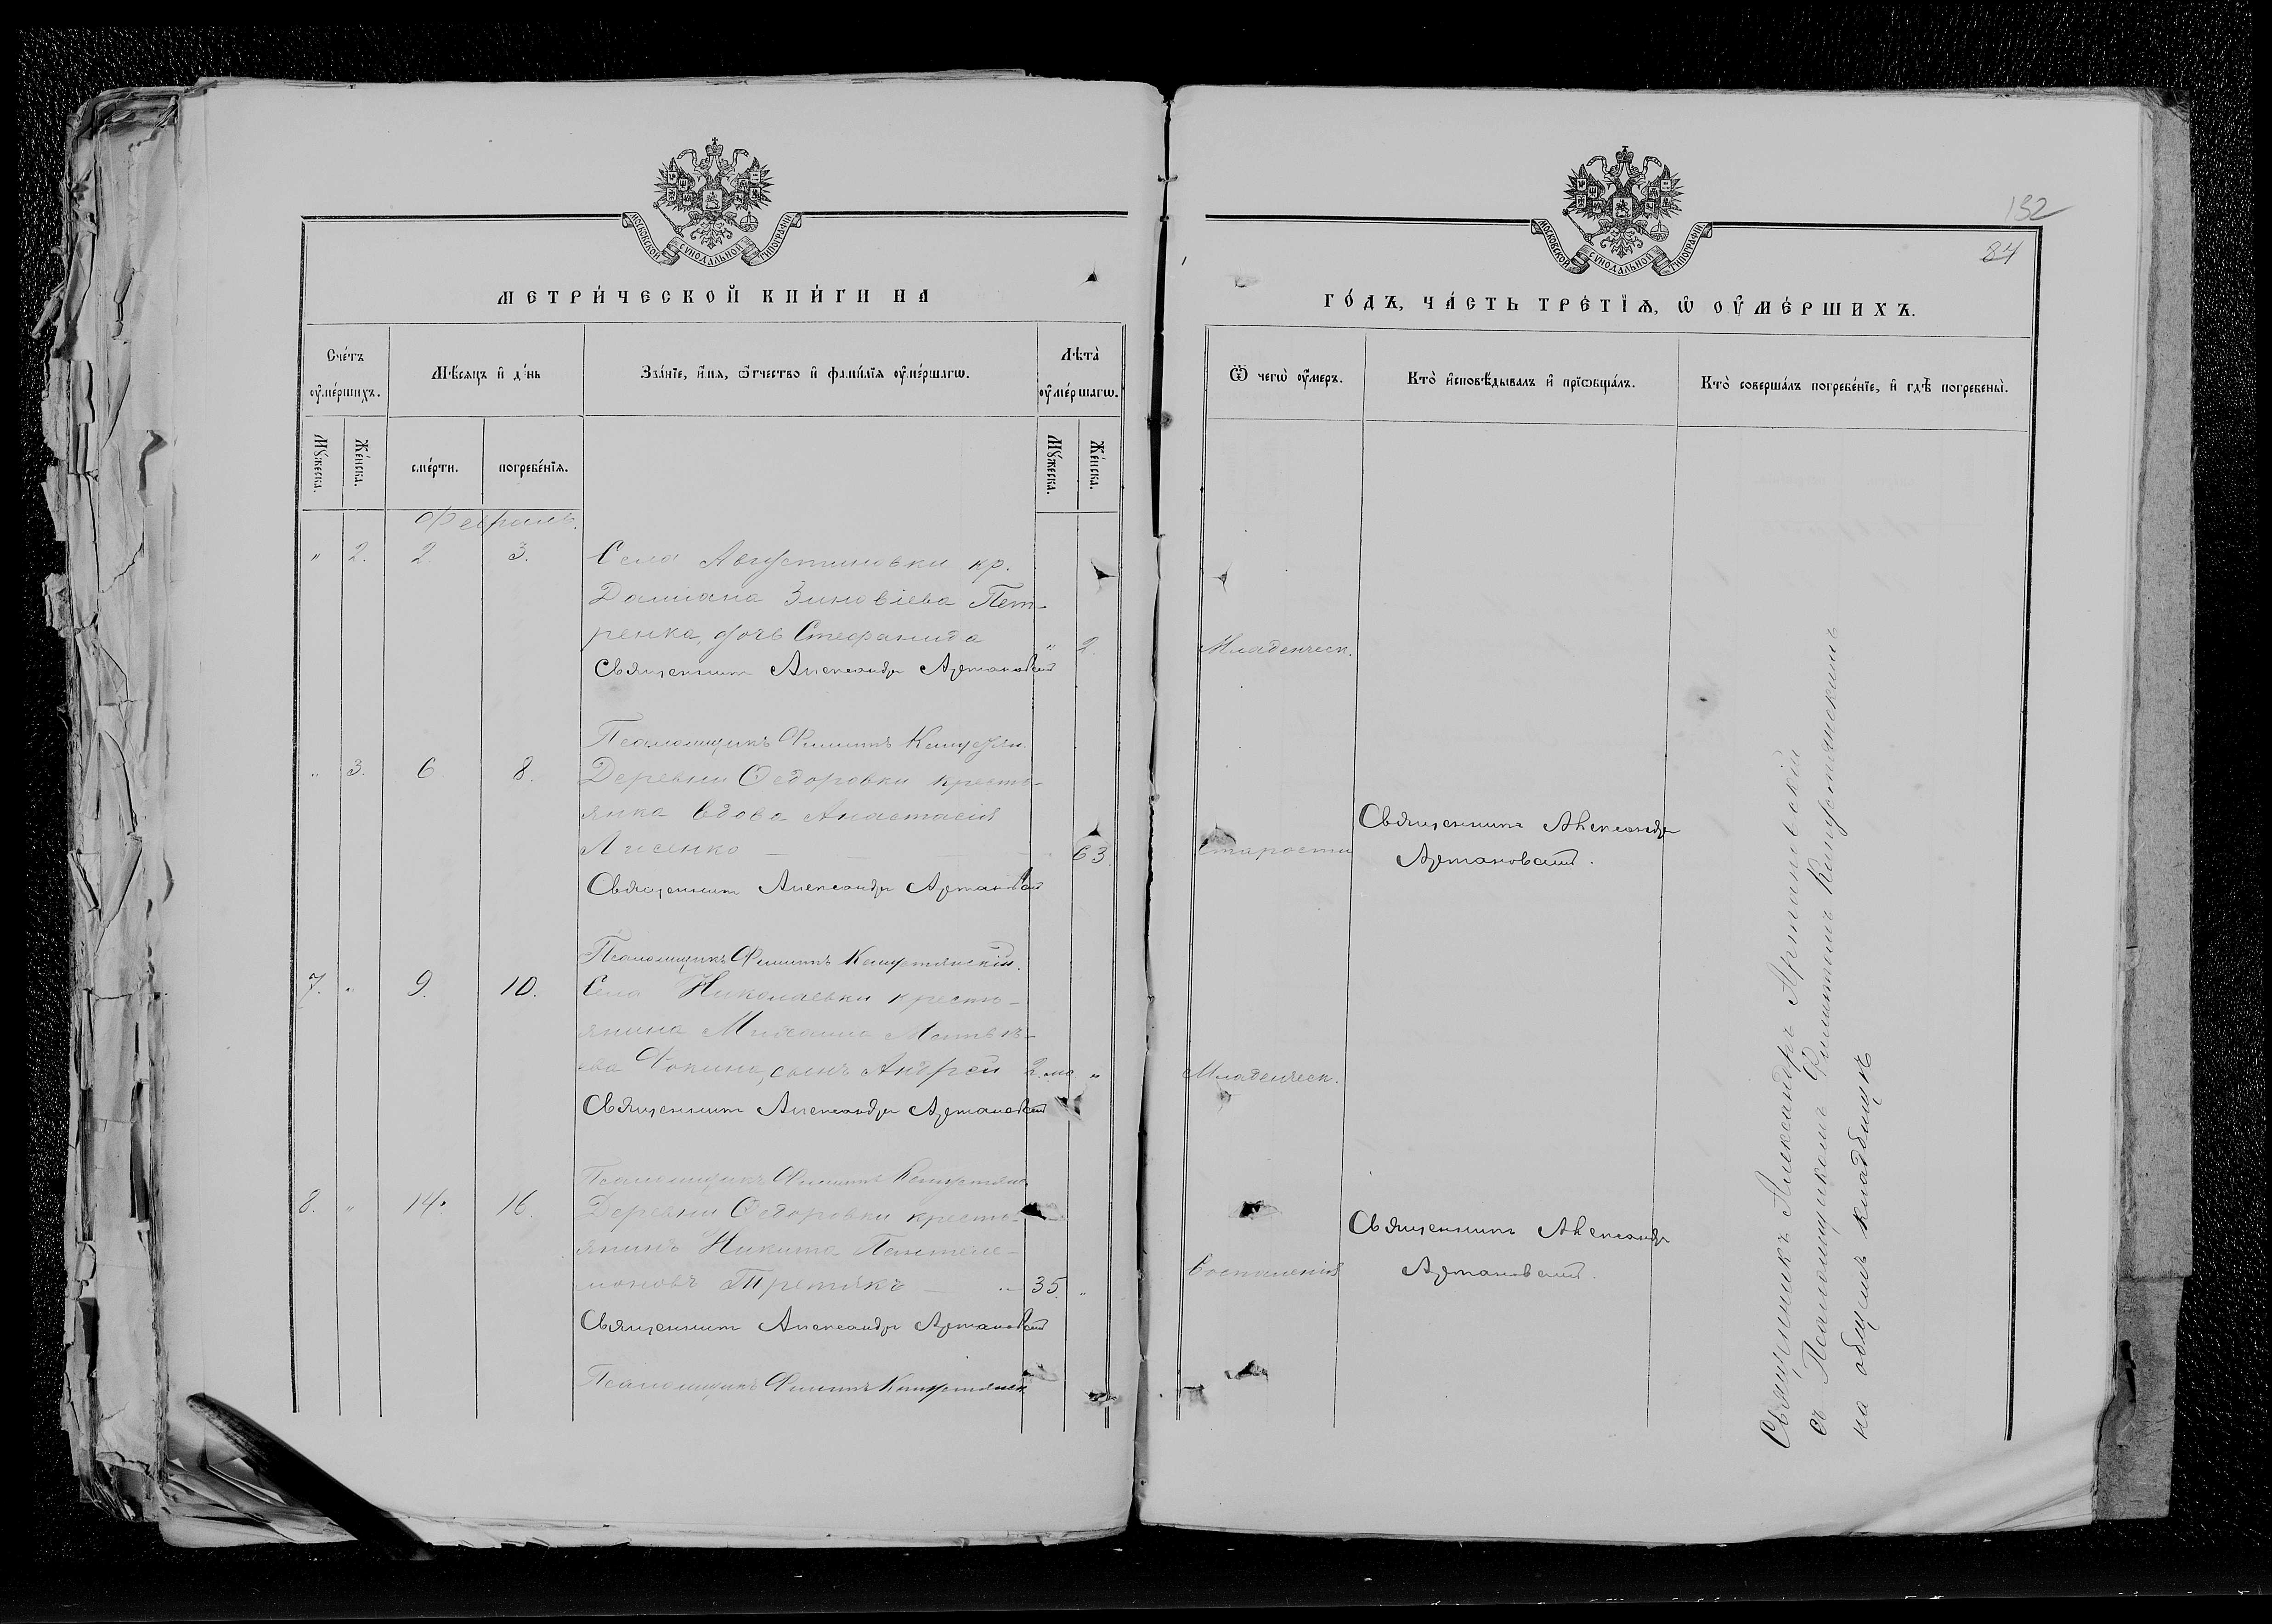 МОСКОВСКОЙ СѴНОДАЛЬНОЙ ТИПОГРАФІИ
МЕТРИ́ЧЕСКОЙ КНИ́ГИ НА
Сче́тъ оумершихъ.
Мѣсяцъ и де́нь
Зва́нїе, и́мѧ, ѻ҆́тчество и҆ фами́лїѧ оу҆ме́ршагѡ.
Лѣта̀ оу҆ме́ршагѡ.
Мꙋ́жеска.
Же́нска.
сме́рти.
погребе́нїѧ.
Мꙋ́жеска.
Же́нска.
Февраль.
" 2. 2. 3. Села Августиновки кр.
Дамiана Зиновіева Пет-
ренка, дочь Стефанида " 2.
Священникъ Александръ Артановскій
Псаломщикъ Филиппъ Капустян.
" 3. 6 8. Деревни Федоровки кресть-
янка вдова Анастасія
Лисенко — 63.
Священникъ Александръ Артановскій
Псаломщикъ Филиппъ Капустянскій.
7. " 9. 10. Села Николаевки кресть-
янина Михаила Матвѣ-
ева Фокина, сынъ Андрей 2. мѣ "
Священникъ Александръ Артановскій
Псаломщикъ Филиппъ Капустянс
8. " 14. 16. Деревни Федоровки кресть-
янинъ Никита Пантеле-
моновъ Третякъ — 35. "
Священникъ Александръ Артановскій
Псаломщикъ Филиппъ Капустянск
МОСКОВСКОЙ СѴНОДАЛЬНОЙ ТИПОГРАФІИ
132
84
ГО́ДЪ, ЧА́СТЬ ТРЕ́ТЇѦ, Ѡ҆ ОУ҆МЕ́РШИХЪ.
Ѿ чегѡ̀ оу҆́меръ.
Кто̀ и҆сповѣ́дывалъ и҆ прїѡбща́лъ.
Кто̀ соверша́лъ погребе́нїе, и҆ гдѣ̀ погребены̀.
Младенческ.
Старости
Священникъ Александръ
Артановскій.
Младенческ.
Воспаленія
Священникъ Александръ
Артановскій.
Священникъ Александръ Артановскій
съ Псаломщикомъ Филиппомъ Капустянскимъ
на общемъ кладбищѣ